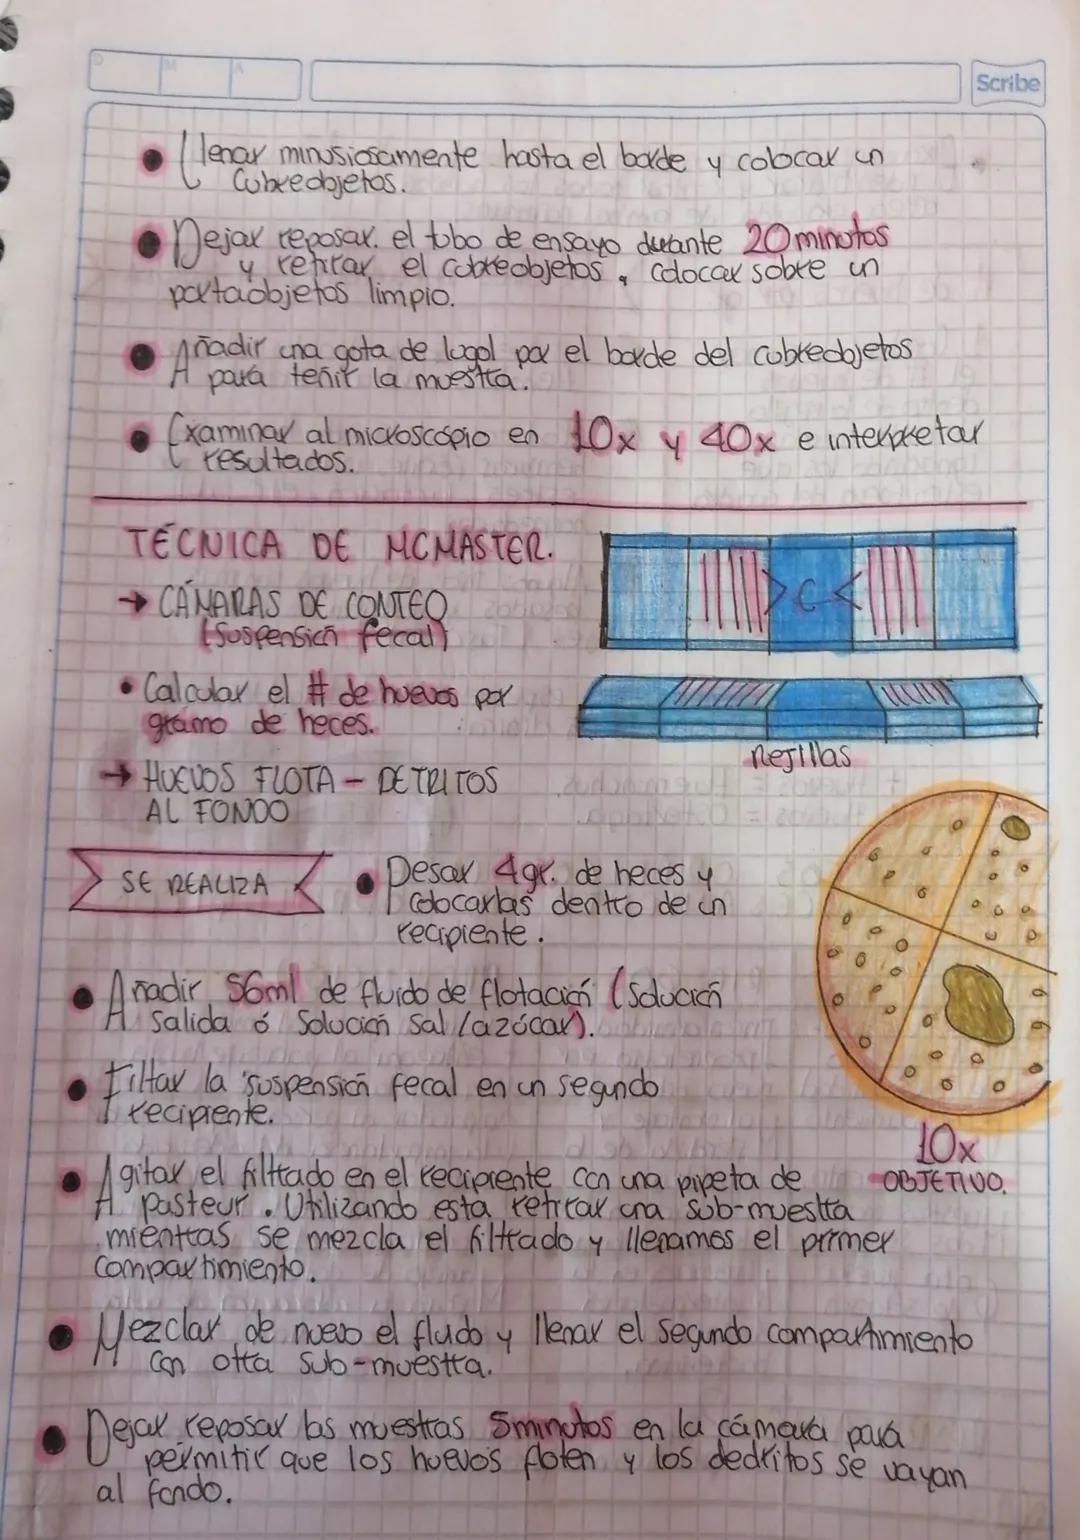 D M A
Scribe
Llenar minusiosamente hasta el borde y colocar un
Cubreobjetos.
Dejar reposar. el tubo de ensayo durante 20 minutos
y retirar el cubreobjetos, colocar sobre un
portaobjetos limpio.
Añadir una gota de lugol por el borde del cubreobjetos
para teñir la muestra.
Examinar al microscopio en 10x y 40x e interpretar
resultados.
TÉCNICA DE MCMASTER.
→ CÁMARAS DE CONTEO
(Suspensión fecal)
• Calcular el # de huevos por
gramo de heces.
→ HUEVOS FLOTA - DETRITOS
AL FONDO
>C<
Rejillas
SE REALIZA
Pesar 4gr. de heces y
colocarlas dentro de un
recipiente.
Añadir 56ml de fluido de flotación (Solución
Salida ó Solución Sal/azúcar).
Filtar la suspensión fecal en un segundo
recipiente.
10x
OBJETIVO.
Agitar el filtrado en el recipiente con una pipeta de
pasteur. Utilizando esta retirar una sub-muestra
mientras se mezcla el filtrado y llenamos el primer
compartimiento.
Mezclar de nuevo el fluido y llenar el segundo compartimiento
con otra sub-muestra.
Dejar reposar las muestras 5minutos en la cámara para
permitir que los huevos floten y los dedritos se vayan
al fondo.